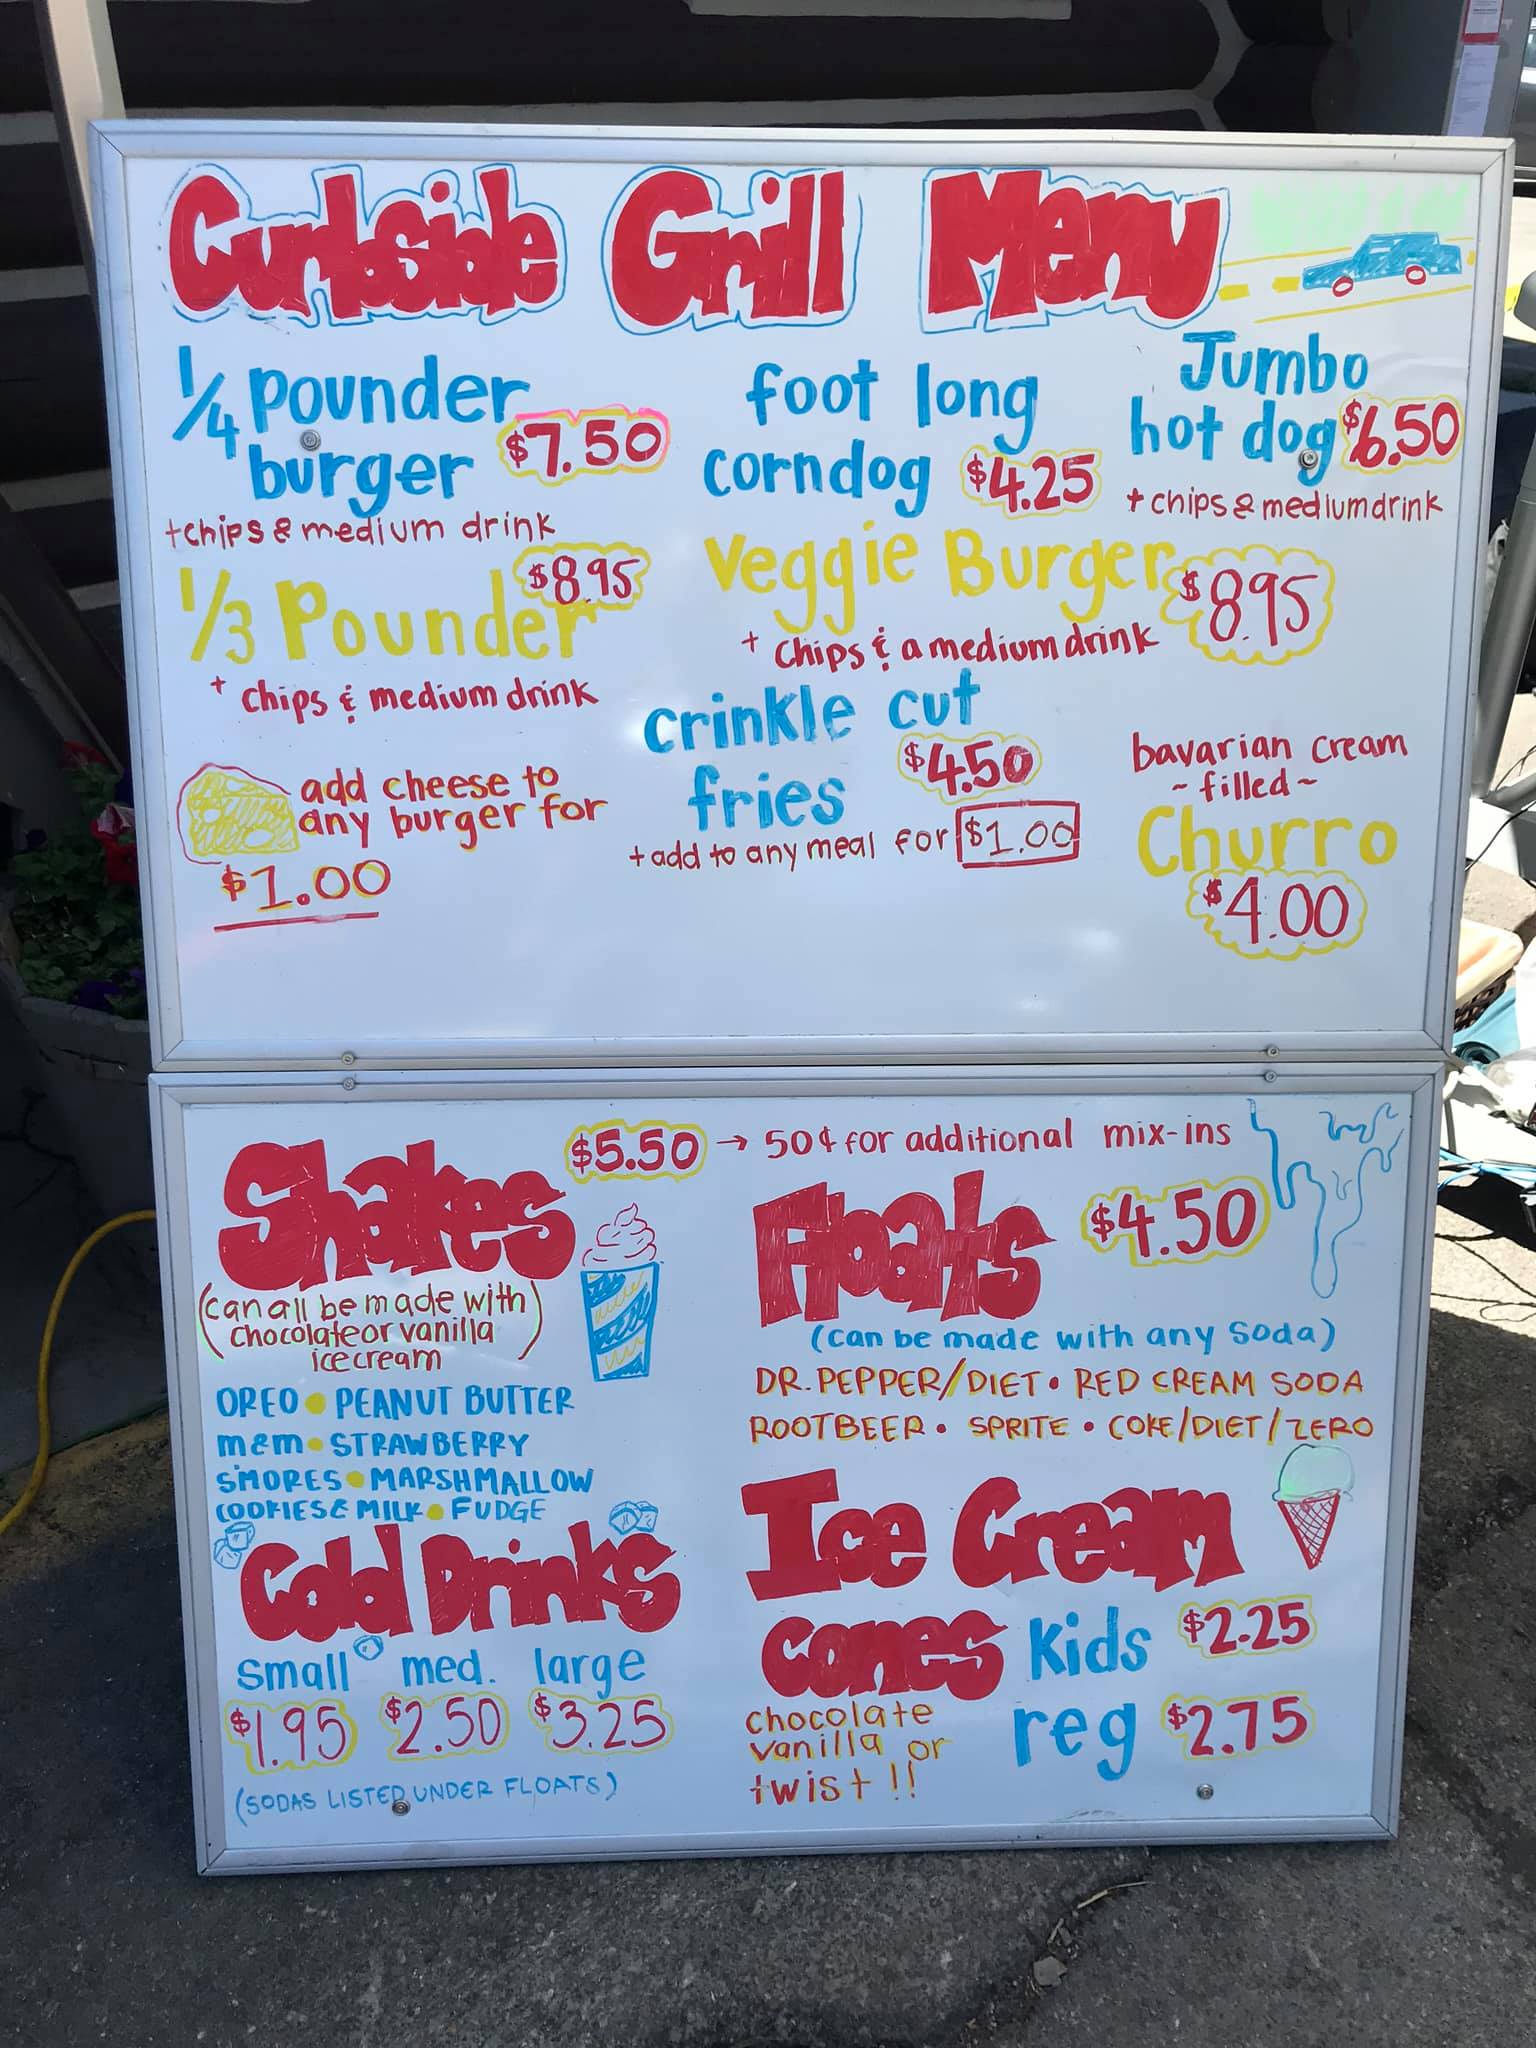 Curbside Grill Menu
1/4 pounder
burger $7.50
+chips & medium drink
1/3 Pounder $8.95
+ chips & medium drink
add cheese to
any burger for
$1.00
foot long
corndog $4.25
Veggie Burger $8.95
+ chips & a medium drink
crinkle cut
fries $4.50
+ add to any meal for $1.00
Jumbo
hot dog $6.50
+ chips & medium drink
bavarian cream
~ filled ~
Churro
$4.00
Shakes $5.50 → 50¢ for additional mix-ins
(can all be made with
chocolate or vanilla
ice cream)
OREO • PEANUT BUTTER
M&M • STRAWBERRY
S'MORES • MARSHMALLOW
COOKIES & MILK • FUDGE
Cold Drinks
small med. large
$1.95 $2.50 $3.25
(SODAS LISTED UNDER FLOATS)
Floats $4.50
(can be made with any soda)
DR. PEPPER/DIET • RED CREAM SODA
ROOTBEER • SPRITE • COKE/DIET/ZERO
Ice Cream
Cones Kids $2.25
reg $2.75
chocolate
vanilla or
twist!!